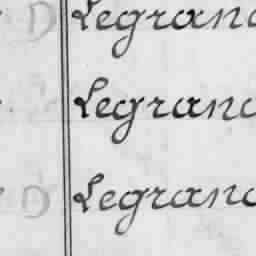 D Legrand
Legrand
D Legrand